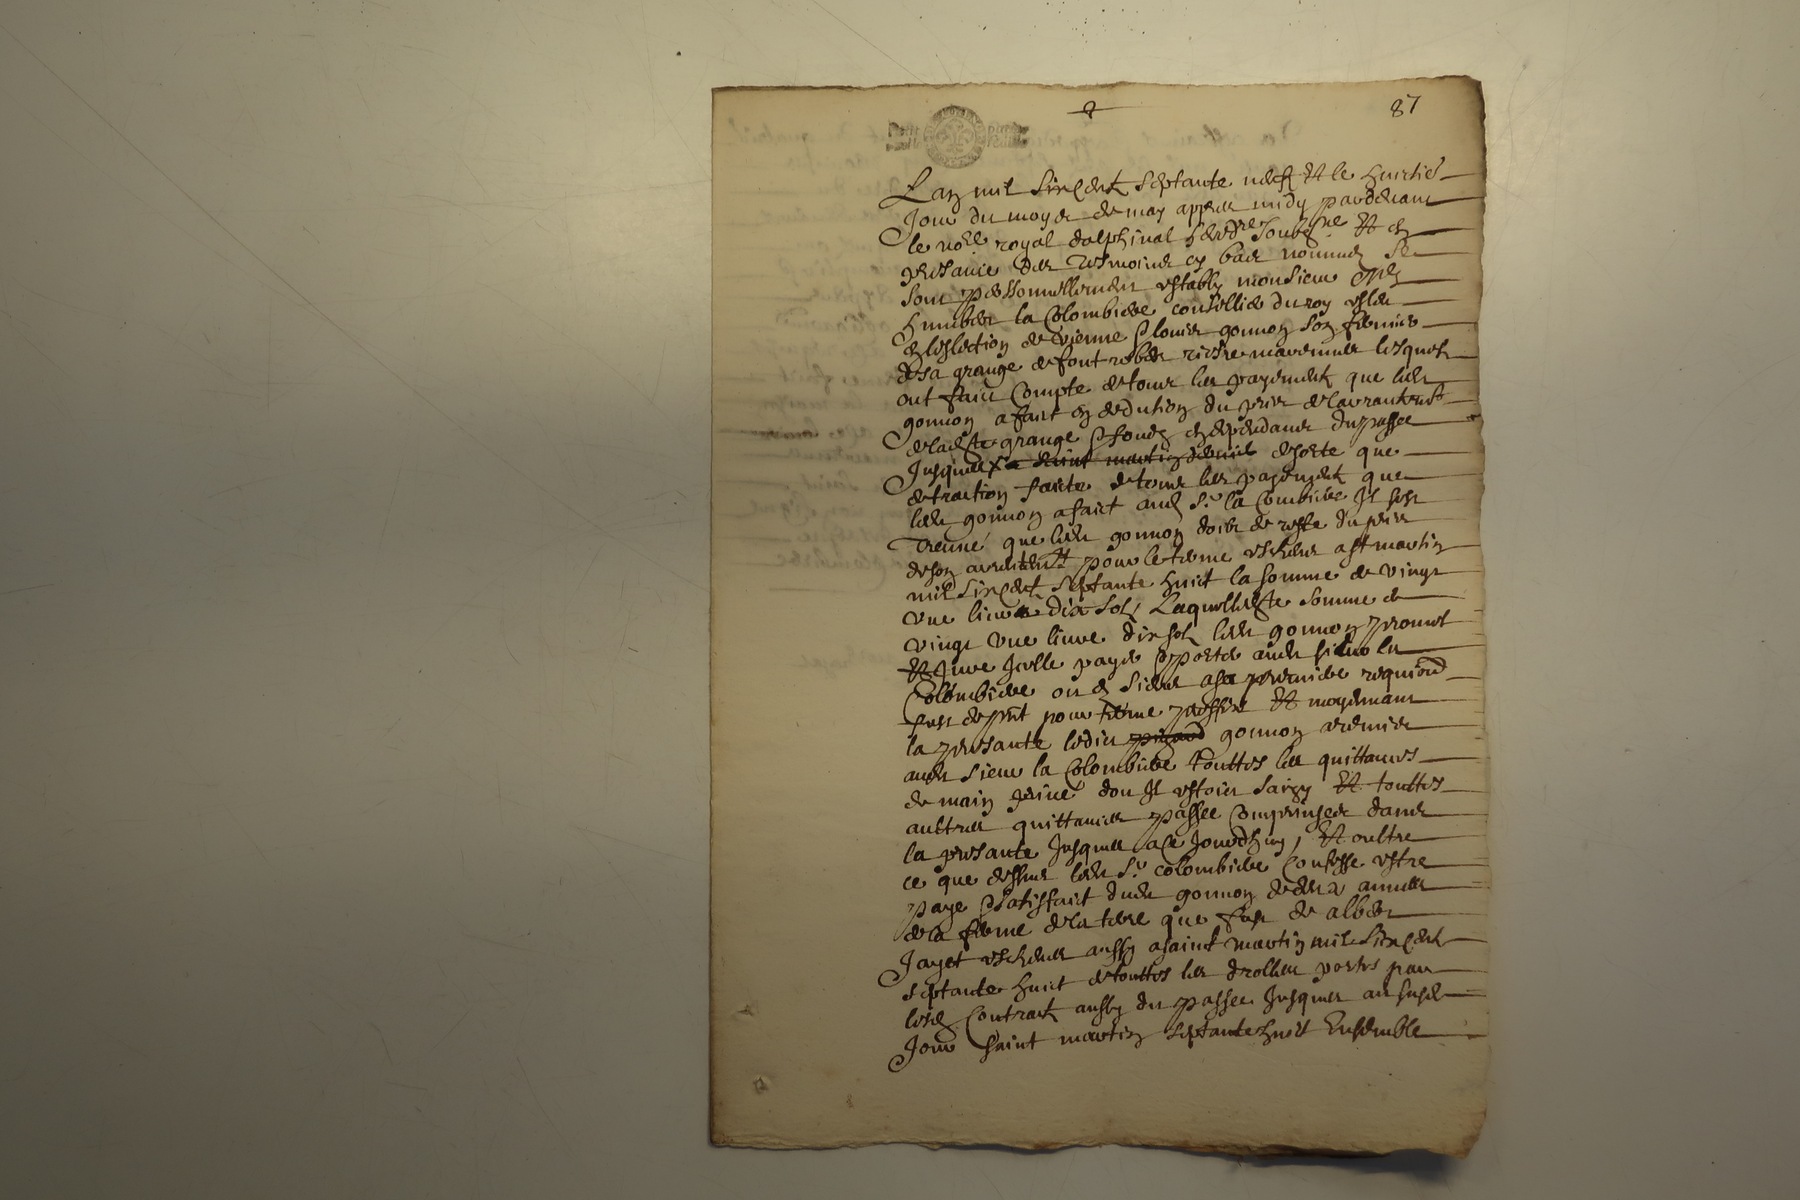 87
L an mil six cent septante neuf et le huictie
Jour du moys de may appres midy pardevant
le nore royal dalphinal heredre soubsne et en
presance des tesmoins cy bas nommes se
sont personnellement estably monsieur
humbert la Colombiere conseillier du roy esleu
en leslection de vienne & louis gonnon son fermier
de sa grange de font lesquels
ont faict compte de tous les payements que ledt
gonnon a faict en deduction du prix de larrantemt
de ladte grange & fonds en dependants du passe
Jusques a saint martin dernier de sorte que
detraction faicte de tous les payements que
ledt gonnon a faict audt Sr la Combiere Il sest
treuvé que ledt gonnon doibt de reste du prix
de son arrentemt pour le terme escheu a st martin
mil six cent septante huict la somme de vingt
une livre dix sols, Laquelle dte somme de
vingt une livre dix sols ledt gonnon promet
et Jure Icelle payer & porter audt sieur la
Colombiere ou es siens a sa premiere requision
fust de pnt pour terme preffix et moyennant
la presante ledict gonnon a remis
audt sieur la Colombiere touttes les quittances
de main privé dou Il estoict saizy et touttes
aultres quittances passee comprinses dans
la presante Jusques a ce Jourdhuy, et oultre
ce que dessus ledt Sr colombiere Confesse estre
paye & satisfaict dudt gonnon de deux annees
de la ferme de la terre que fust de albert
Jayet escheues aussy a saint martin mil six cent
septante huict de touttes les drolles portes par
lesd Contract aussy du passe Jusques au susdt
Jour saint martin septante huict Ensemble